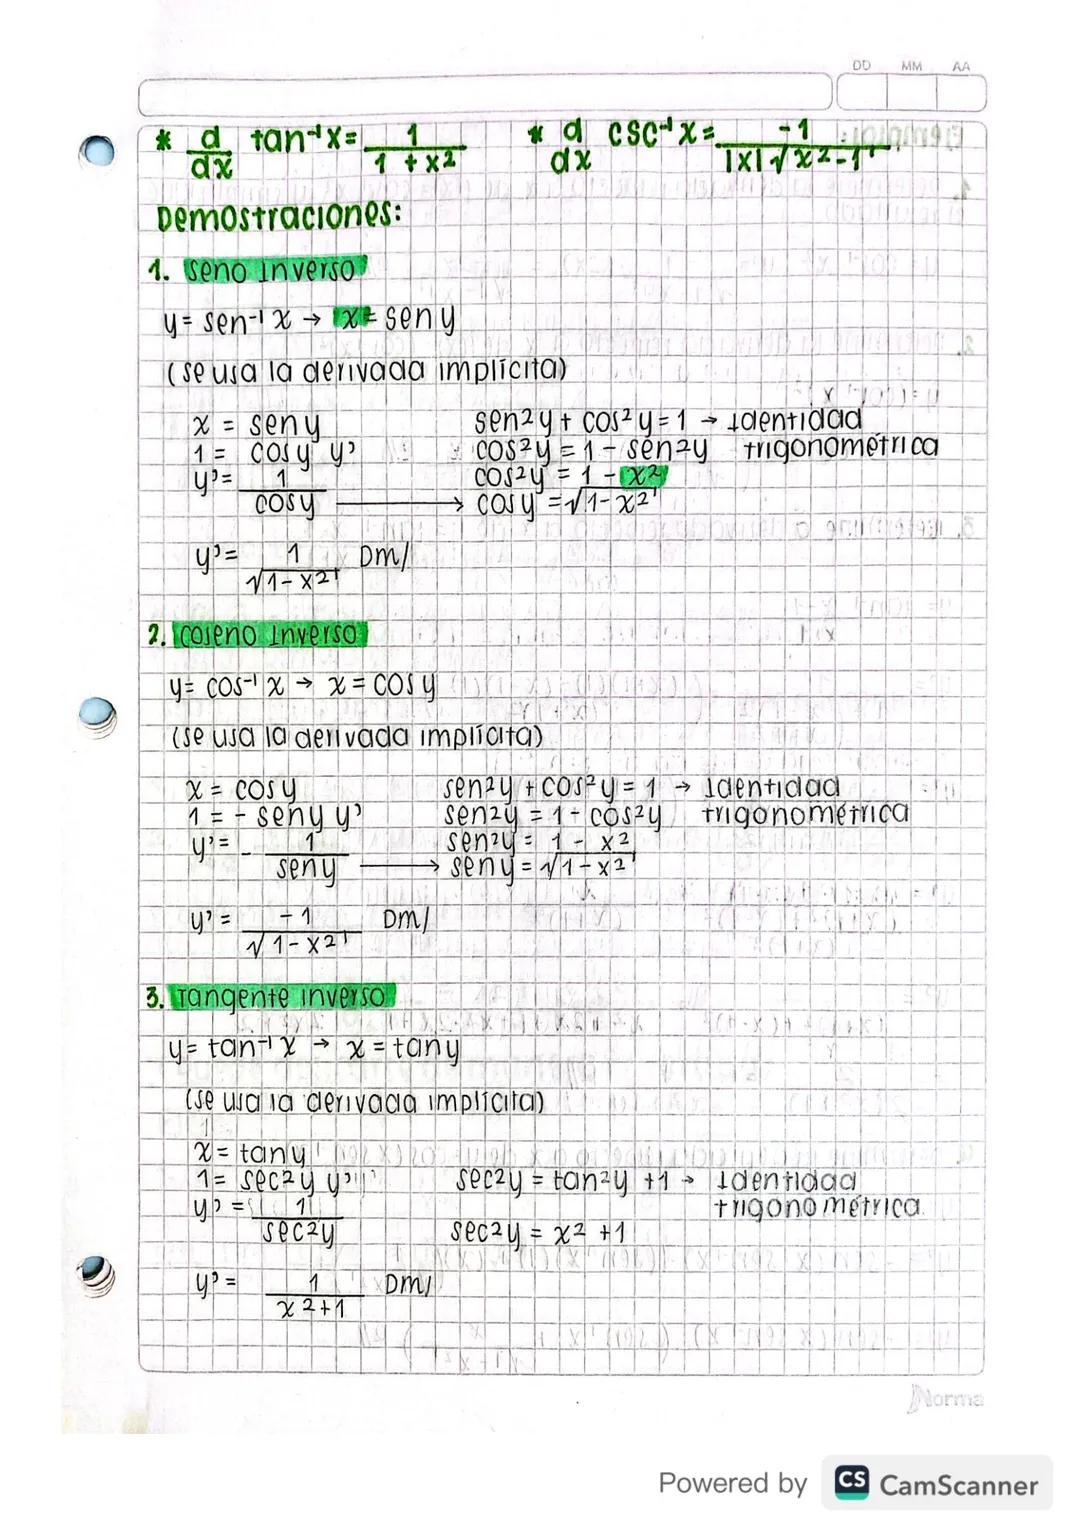 DD MM AA
* d/dx tan⁻¹x = 1/(1 + x²)    * d/dx csc⁻¹x = -1/(|x|√(x²-1))
Demostraciones:
1. seno Inverso
y = sen⁻¹ x → x = sen y
(se usa la derivada implícita)
x = sen y    sen²y + cos²y = 1 → Identidad
1 = cos y y'    cos²y = 1 - sen²y trigonométrica
y' = 1/cos y    cos²y = 1 - x²
→ cos y = √(1-x²)
y' = 1/√(1-x²) Dm/
2. coseno Inverso
y = cos⁻¹ x → x = cos y
(se usa la derivada implícita)
x = cos y    sen²y + cos²y = 1 → Identidad
1 = - sen y y'    sen²y = 1 - cos²y trigonométrica
y' = - 1/sen y    sen²y = 1 - x²
→ sen y = √(1-x²)
y' = -1/√(1-x²) Dm/
3. Tangente inverso
y = tan⁻¹ x → x = tan y
(se usa la derivada implícita)
x = tan y
1 = sec²y y'    sec²y = tan²y + 1 → Identidad
y' = 1/sec²y    trigonométrica.
sec²y = x² + 1
y' = 1/(x²+1) Dm/
Norma
Powered by CS CamScanner